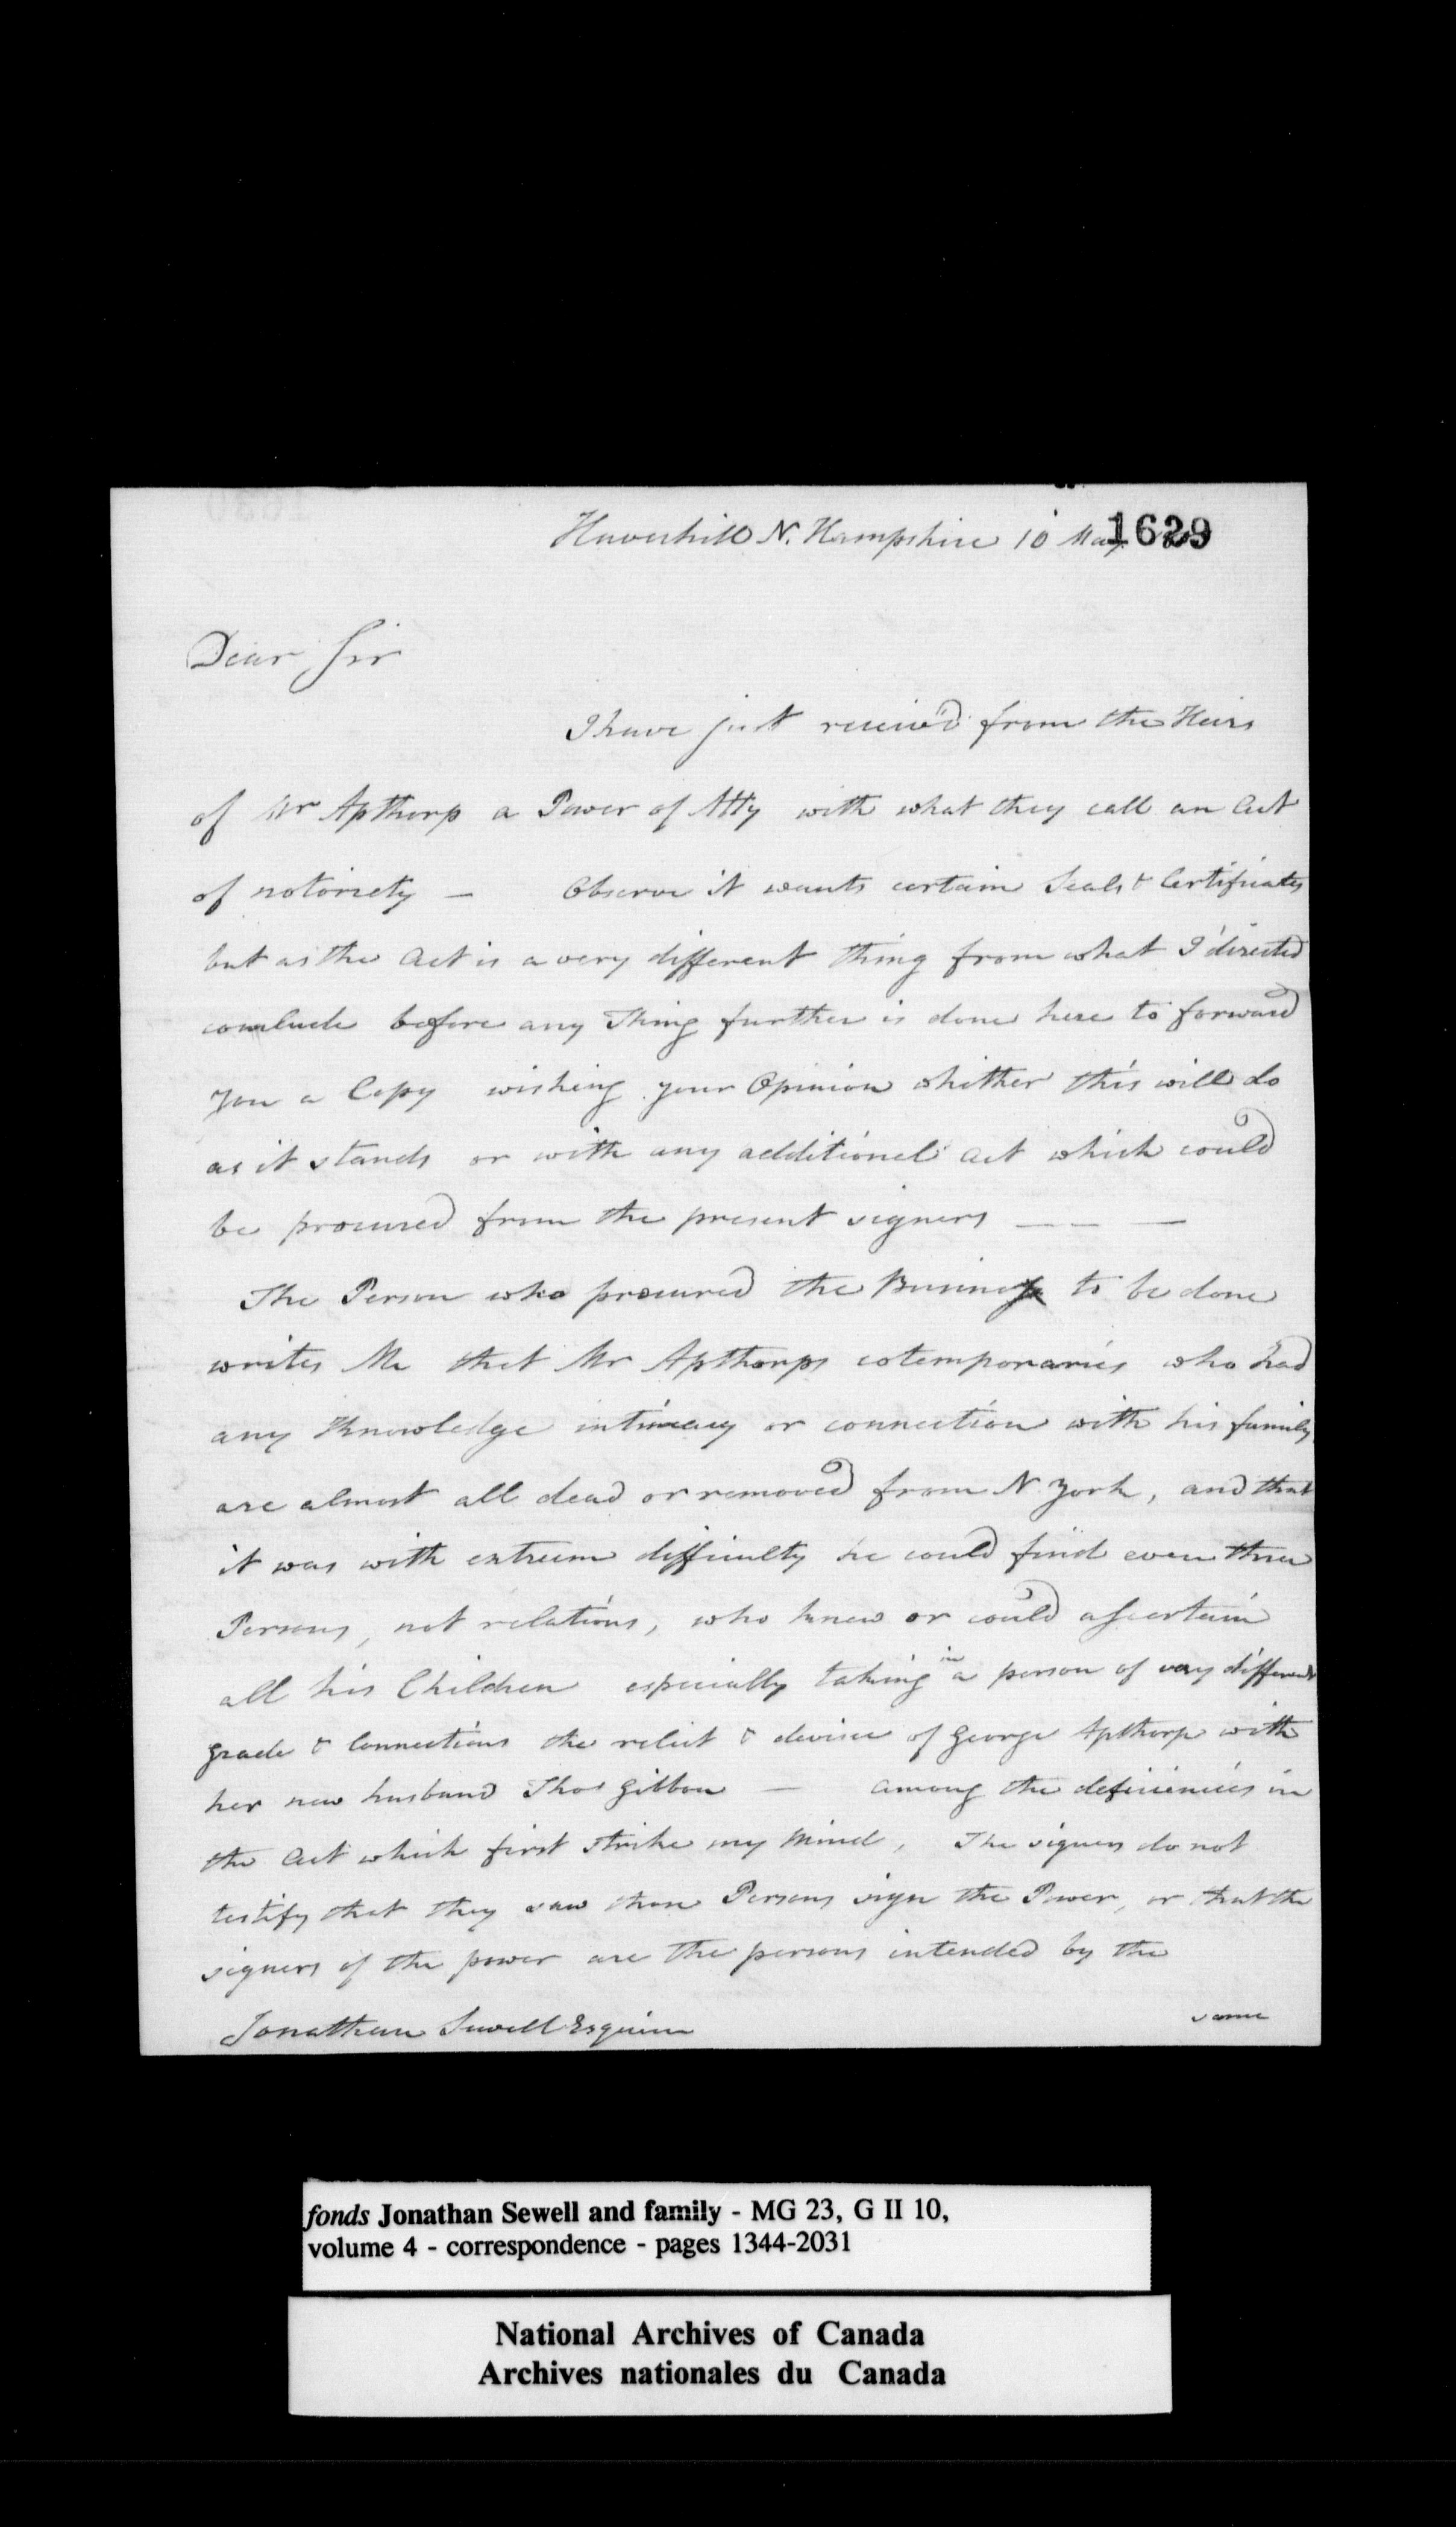 1629
Haverhill N. Hampshire 10 May
Dear Sir
I have just receiv'd from the Heirs
of Mr Apthorp a Power of Atty with what they call an Act
of notoriety — Observe it wants certain Seals & Certificates
but as the Act is a very different thing from what I directed
conclude before any Thing further is done here to forward
you a Copy wishing your Opinion whither this will do
as it stands or with any additional act which could
be procured from the present signers — — —
The Person who procured the Business to be done
writes Me that Mr Apthorps cotemporaries who had
any Knowledge intimacy or connection with his family
are almost all dead or removed from N. York, and that
it was with extreem difficulty he could find even three
Persons, not relations, who knew or could ascertain
all his Children especially taking in a person of very different
grade & Connections the relict & devisee of George Apthorp with
her new husband Thos Gibbon — among the deficiencies in
the Act which first strike my Mind, The signers do not
testify that they saw those Persons sign the Power, or that the
signers of the power are the persons intended by the
Jonathan Sewell Esquire same
fonds Jonathan Sewell and family - MG 23, G II 10,
volume 4 - correspondence - pages 1344-2031
National Archives of Canada
Archives nationales du Canada